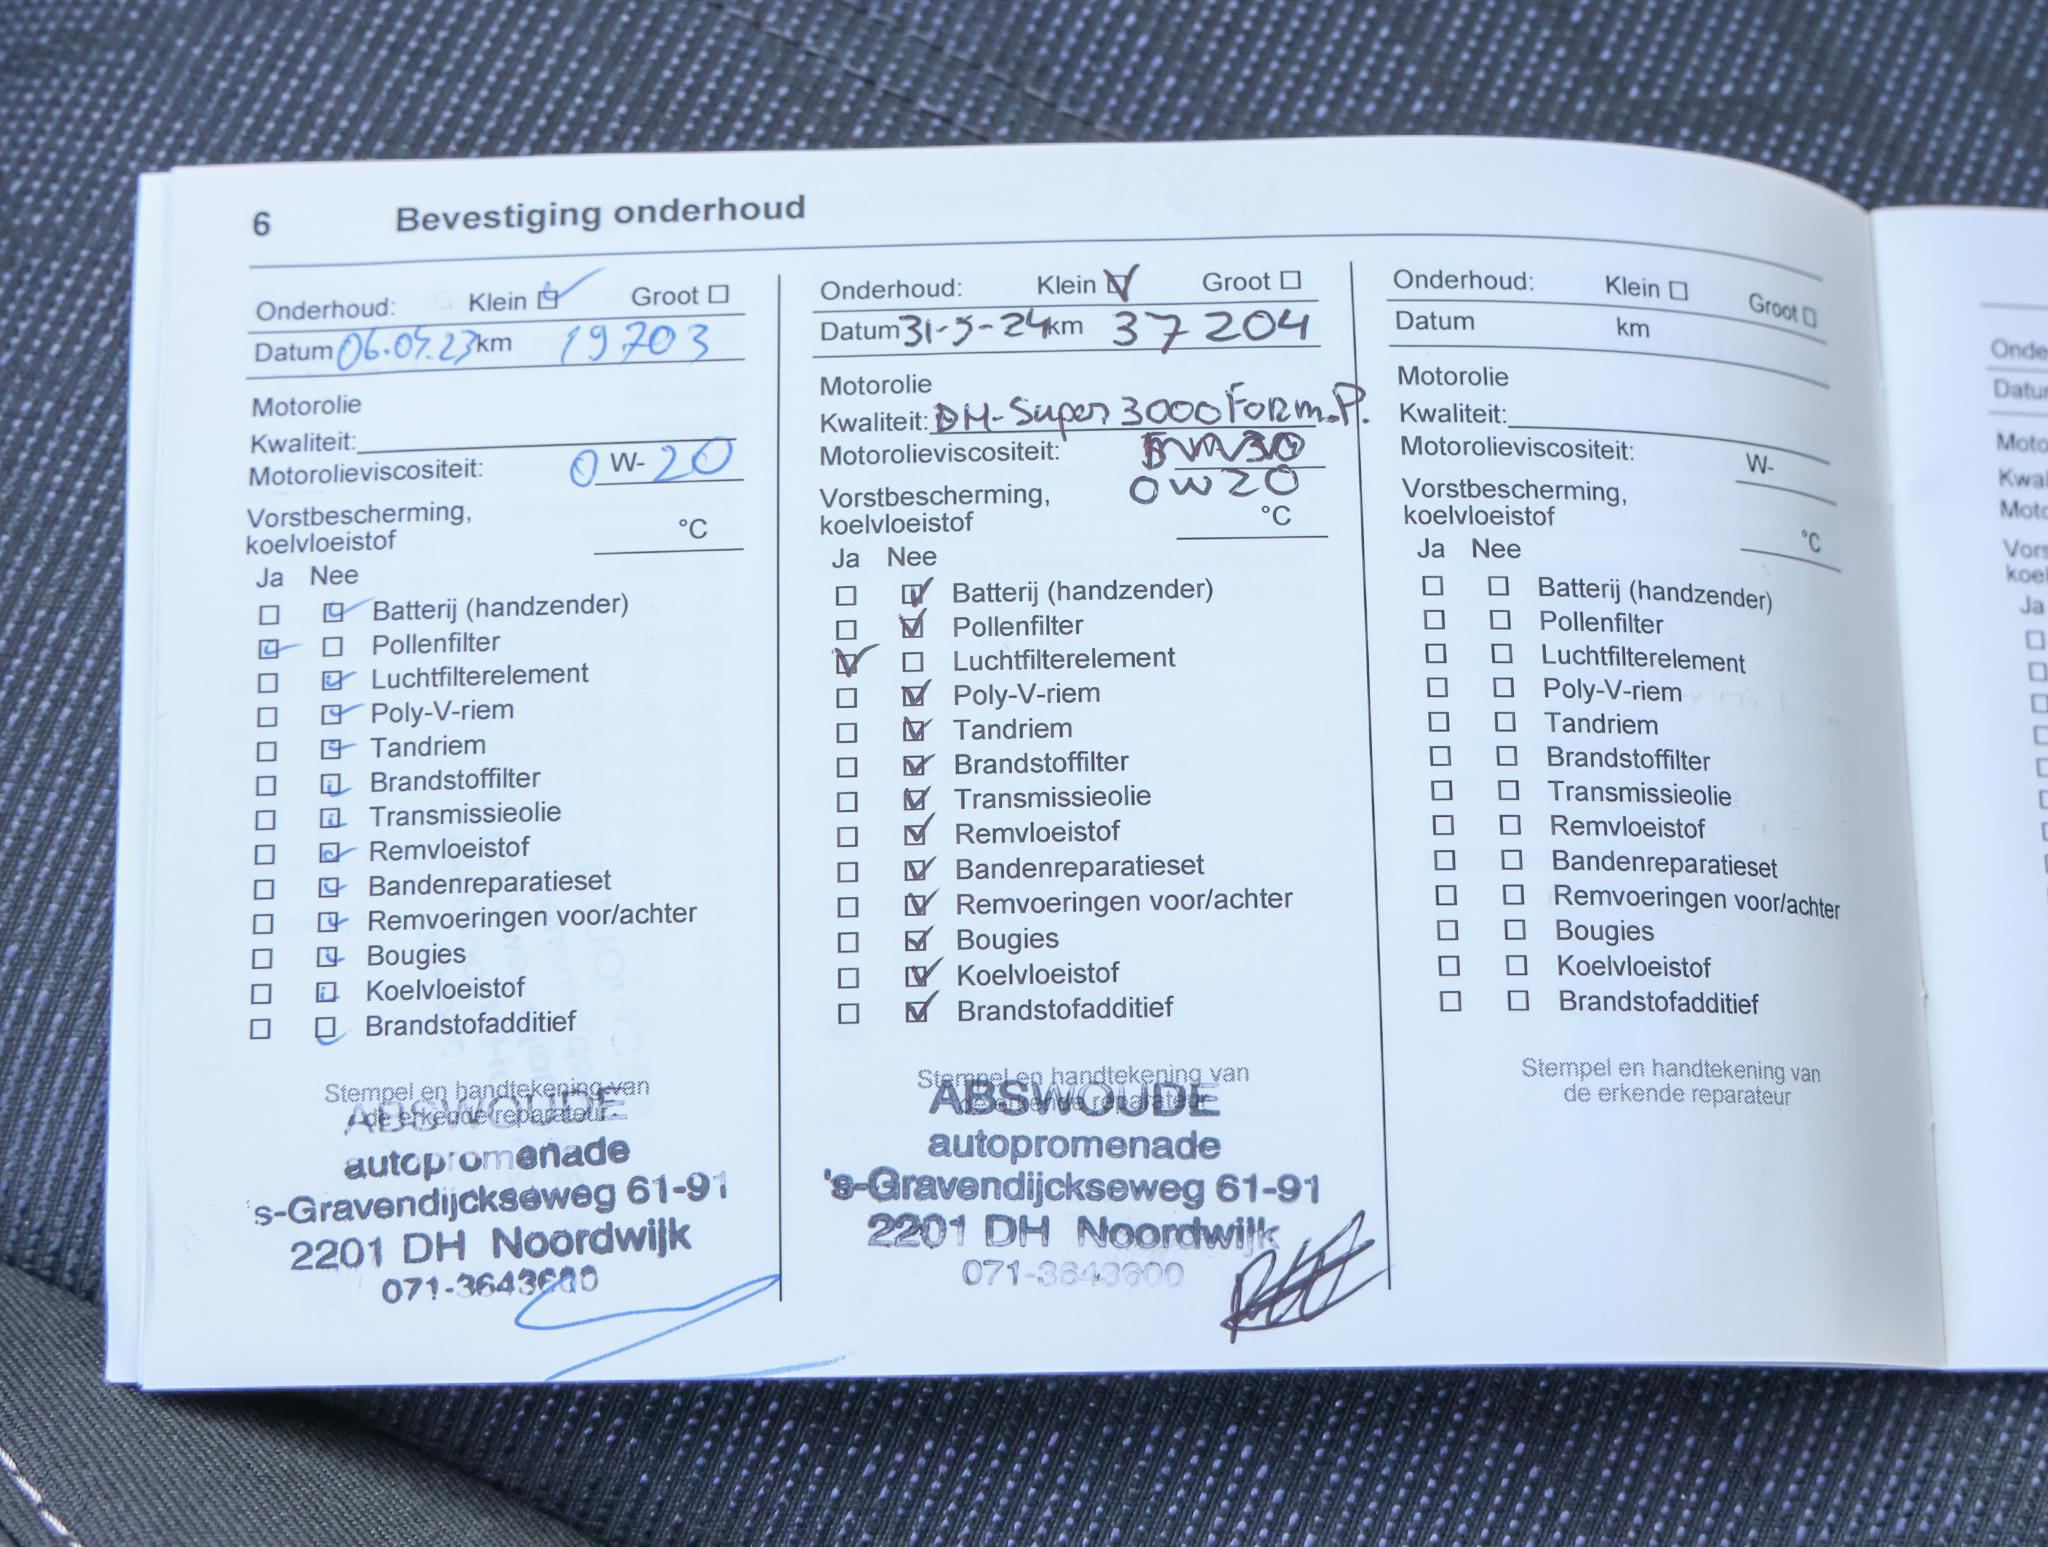 6 Bevestiging onderhoud
Onderhoud: Klein Groot
Datum 06.04.23 km 19703
Motorolie
Kwaliteit:
Motorolieviscositeit: 0 W- 20
Vorstbescherming,
koelvloeistof °C
Ja Nee
Batterij (handzender)
Pollenfilter
Luchtfilterelement
Poly-V-riem
Tandriem
Brandstoffilter
Transmissieolie
Remvloeistof
Bandenreparatieset
Remvoeringen voor/achter
Bougies
Koelvloeistof
Brandstofadditief
Stempel en handtekening van
de erkende reparateur
ABSWOUDE
autopromenade
's-Gravendijckseweg 61-91
2201 DH Noordwijk
071-3643600
Onderhoud: Klein Groot
Datum 31-5-24 km 37204
Motorolie
Kwaliteit: DM-Super 3000 Form.P.
Motorolieviscositeit:
0W20
Vorstbescherming,
koelvloeistof °C
Ja Nee
Batterij (handzender)
Pollenfilter
Luchtfilterelement
Poly-V-riem
Tandriem
Brandstoffilter
Transmissieolie
Remvloeistof
Bandenreparatieset
Remvoeringen voor/achter
Bougies
Koelvloeistof
Brandstofadditief
Stempel en handtekening van
de erkende reparateur
ABSWOUDE
autopromenade
's-Gravendijckseweg 61-91
2201 DH Noordwijk
071-3643600
Onderhoud: Klein Groot
Datum km
Motorolie
Kwaliteit:
Motorolieviscositeit: W-
Vorstbescherming,
koelvloeistof °C
Ja Nee
Batterij (handzender)
Pollenfilter
Luchtfilterelement
Poly-V-riem
Tandriem
Brandstoffilter
Transmissieolie
Remvloeistof
Bandenreparatieset
Remvoeringen voor/achter
Bougies
Koelvloeistof
Brandstofadditief
Stempel en handtekening van
de erkende reparateur
Onde
Datu
Moto
Kwal
Moto
Vors
koel
Ja